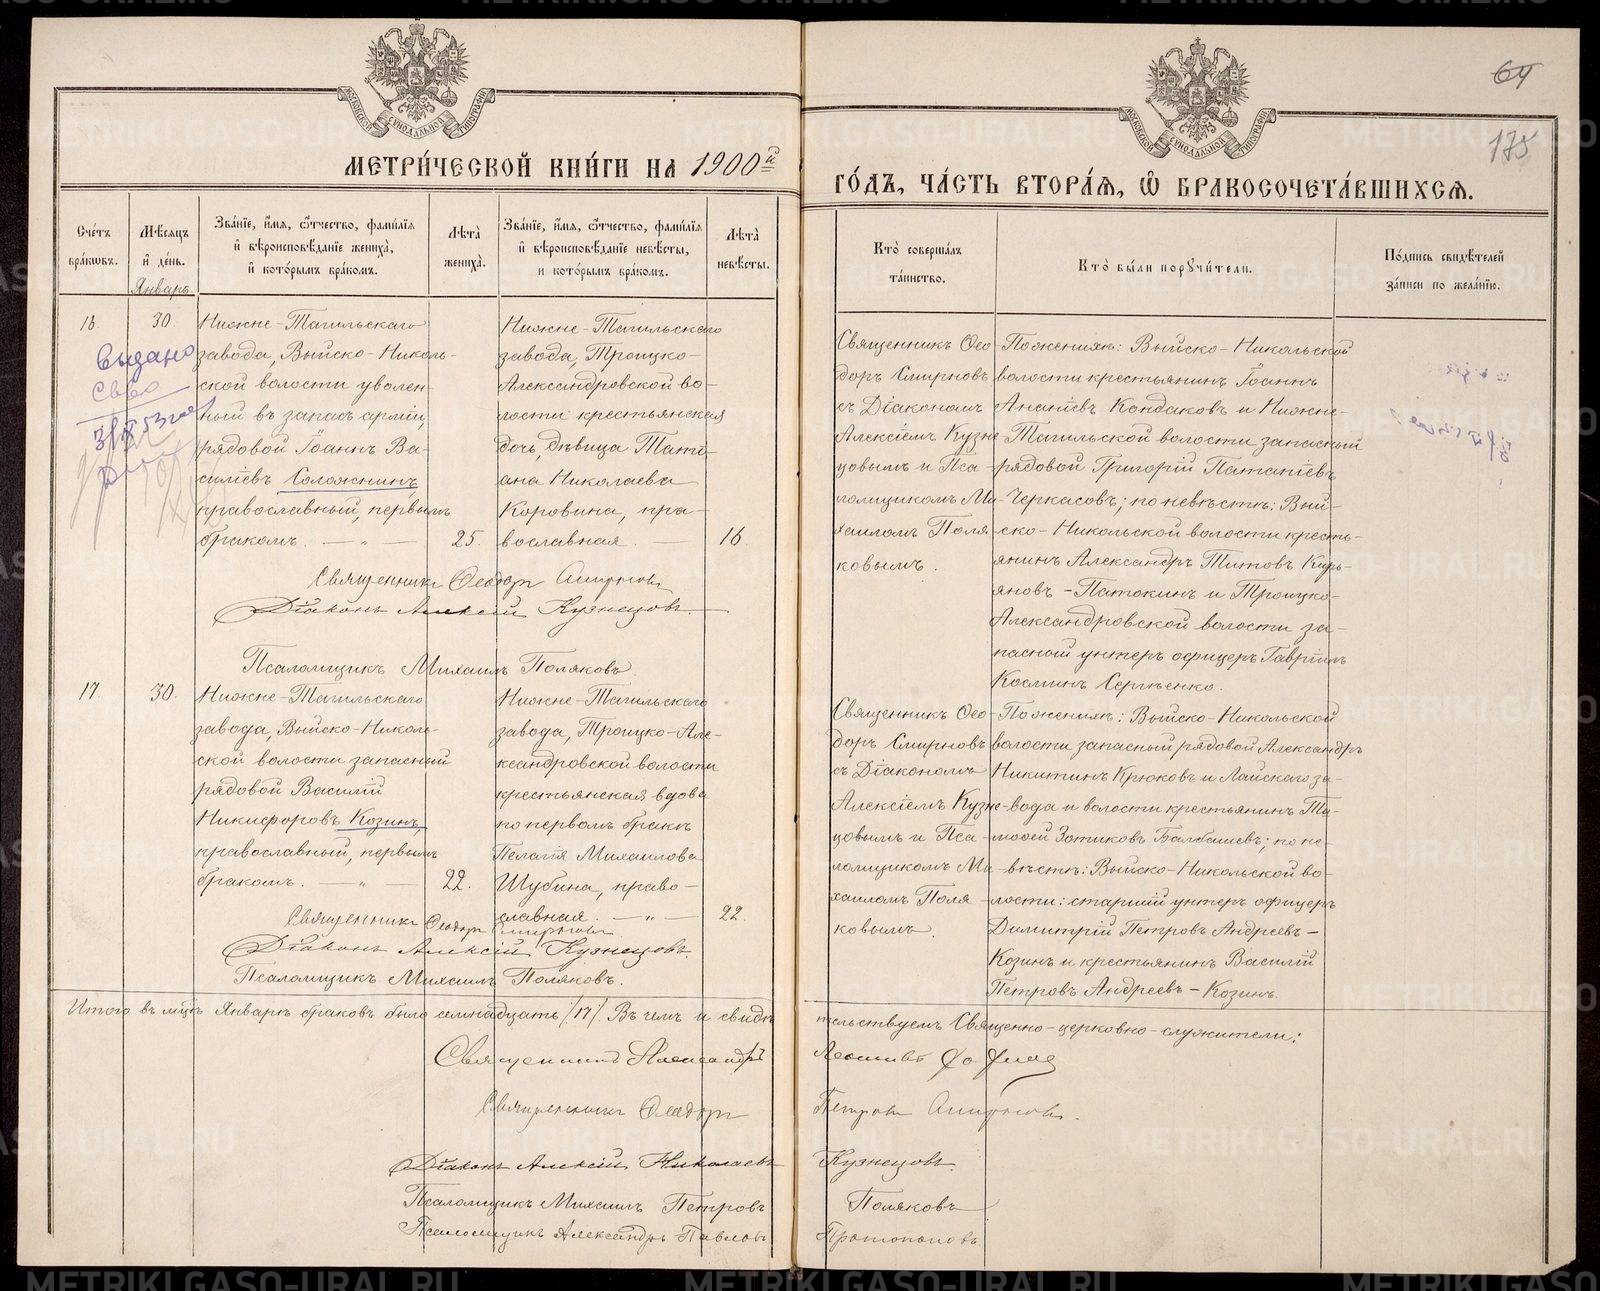 МЕТРИ́ЧЕСКОЙ КНИ́ГИ НА 1900й
ГО́ДЪ, ЧА́СТЬ ВТОРА́Ѧ, Ѽ БРАКОСОЧЕТА́ВШИХСѦ.
64
175
МОСКОВСКОЙ СѴНОДАЛЬНОЙ ТИПОГРАФІИ
МОСКОВСКОЙ СѴНОДАЛЬНОЙ ТИПОГРАФІИ
Сче́тъ
бра́кѡвъ.
Мѣ́сѧцъ
и҆ де́нь.
Январь.
Зва́нїе, и҆́мѧ, ѻ҆́тчество, фами́лїѧ
и҆ вѣроисповѣ́данїе жениха̀,
и҆ кото́рымъ бра́комъ.
Лѣ́та̀
жениха̀.
Зва́нїе, и҆́мѧ, ѻ҆́тчество, фами́лїѧ
и҆ вѣроисповѣ́данїе невѣ́сты,
и кото́рымъ бра́комъ.
Лѣ́та̀
невѣ́сты.
Кто̀ соверша́лъ
та́инство.
Кто̀ бы́ли порꙋчи́тели.
По́дпись свидѣ́телей
за́писи по жела́нїю.
16.
30.
Нижне-Тагильскаго
завода, Выйско-Николь-
ской волости уволен-
ный въ запасъ арміи,
рядовой Іоаннъ Ва-
силіевъ Соложнинъ,
православный, первымъ
бракомъ. — „ —
25.
Нижне-Тагильскаго
завода, Троицко-
Александровской во-
лости крестьянская
дочь, дѣвица Тати-
ана Николаева
Коровина, пра-
вославная
16
Выдано
Священникъ Ѳео-
доръ Смирновъ
съ Діакономъ
Алексіемъ Кузне-
цовымъ и Пса-
ломщикомъ Ми-
хаиломъ Поля-
ковымъ.
По женихѣ: Выйско-Никольской
волости крестьянинъ Іоаннъ
Ананіевъ Кондаковъ и Нижне-
Тагильской волости запасный
рядовой Григорій Патапіевъ
Черкасовъ; по невѣстѣ: Вый-
ско-Никольской волости кресть-
янинъ Александръ Титовъ Кирь-
яновъ-Патокинъ и Троицко-
Александровской волости за-
пасной унтеръ офицеръ Гавріилъ
Косминъ Сергѣенко.
Священникъ Ѳеодоръ Смирновъ
Діаконъ Алексій Кузнецовъ.
Псаломщикъ Михаилъ Поляковъ
17.
30.
Нижне-Тагильскаго
завода, Выйско-Николь-
ской волости запасный
рядовой Василій
Никифоровъ Козинъ,
православный, первымъ
бракомъ. — „ —
22.
Нижне-Тагильскаго
завода, Троицко-Але-
ксандровской волости
крестьянская вдова
по первомъ бракѣ
Пелагія Михаилова
Шубина, право-
славная. — „ —
22.
Священникъ Ѳео-
доръ Смирновъ
съ Діакономъ
Алексіемъ Кузне-
цовымъ и Пса-
ломщикомъ Ми-
хаиломъ Поля-
ковымъ.
По женихѣ: Выйско-Никольской
волости запасный рядовой Александръ
Никитинъ Крюковъ и Лайскаго за-
вода и волости крестьянинъ Ти-
моѳей Зотиковъ Балбашевъ; по не-
вѣстѣ: Выйско-Никольской во-
лости: старшій унтеръ офицеръ
Димитрій Петровъ Андреевъ-
Козинъ и крестьянинъ Василій
Петровъ Андреевъ-Козинъ.
Священникъ Ѳеодоръ Смирновъ
Діаконъ Алексій Кузнецовъ.
Псаломщикъ Михаилъ Поляковъ.
Итого въ мцѣ Январѣ браковъ было семнадцать /17/. Въ чемъ и свидѣ
тельствуемъ Священно-церковно-служители:
Священникъ Александръ
Священникъ Ѳеодоръ Петровъ Смирновъ.
Діаконъ Алексій Николаевъ Кузнецовъ.
Псаломщикъ Михаилъ Петровъ Поляковъ
Псаломщикъ Александръ Павловъ Протопоповъ
METRIKI.GASO-URAL.RU